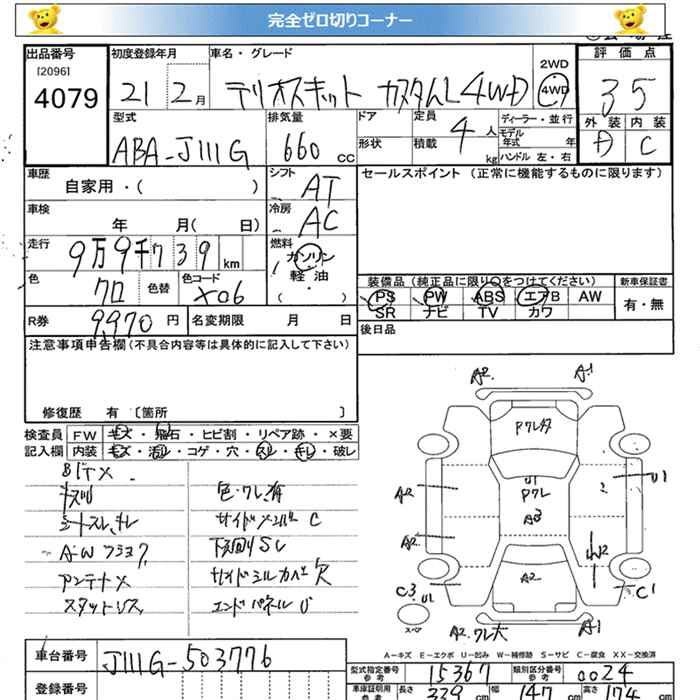 完全ゼロ切りコーナー
出品番号
[2096]
4079
初度登録年月
21 2月
車名・グレード
テリオスキット カスタムL 4WD
2WD
4WD
評価点
3 5
外装 内装
A C
型式
ABA-J111G
排気量
660 cc
ドア
形状
定員
4人
積載
kg
ディーラー・並行
モデル年式 年
ハンドル 左・右
車歴
自家用・( )
シフト
AT
セールスポイント (正常に機能するものに限ります)
車検
年 月(日)
冷房
AC
走行
9万9千739 km
燃料
ガソリン
軽・油
( ・ )
色
クロ
色替
色コード
X06
装備品(純正品に限り○をつけてください)
PS PW ABS エアB AW
SR ナビ TV カワ
新車保証書
有・無
R券
9970 円
名変期限 月 日
後日品
注意事項申告欄(不具合内容等は具体的に記入して下さい)
修復歴 有 〔箇所 〕
検査員記入欄
FW キズ・飛石・ヒビ割・リペア跡・×要
内装 キズ・汚レ・コゲ・穴・スレ・キレ・破レ
シートスレ、キレ
アンテナ×
色・ワレ有
サイドメンバー C
下回りSレ
サイドシルカバー欠
エンドパネル U
A2 A1
U1
PワレU1
A3
A2
A2
U1
W2
C1
C3 U1
スペア
A2
A2 ワレ大 A1
A-キズ E-エクボ U-凹み W-補修跡 S-サビ C-腐食 XX-交換済
車台番号
J111G-503776
登録番号
型式指定番号参考
15367
類別区分番号参考
0024
車庫証明用参考
長さ 339 cm 幅 147 cm 高さ 174 cm